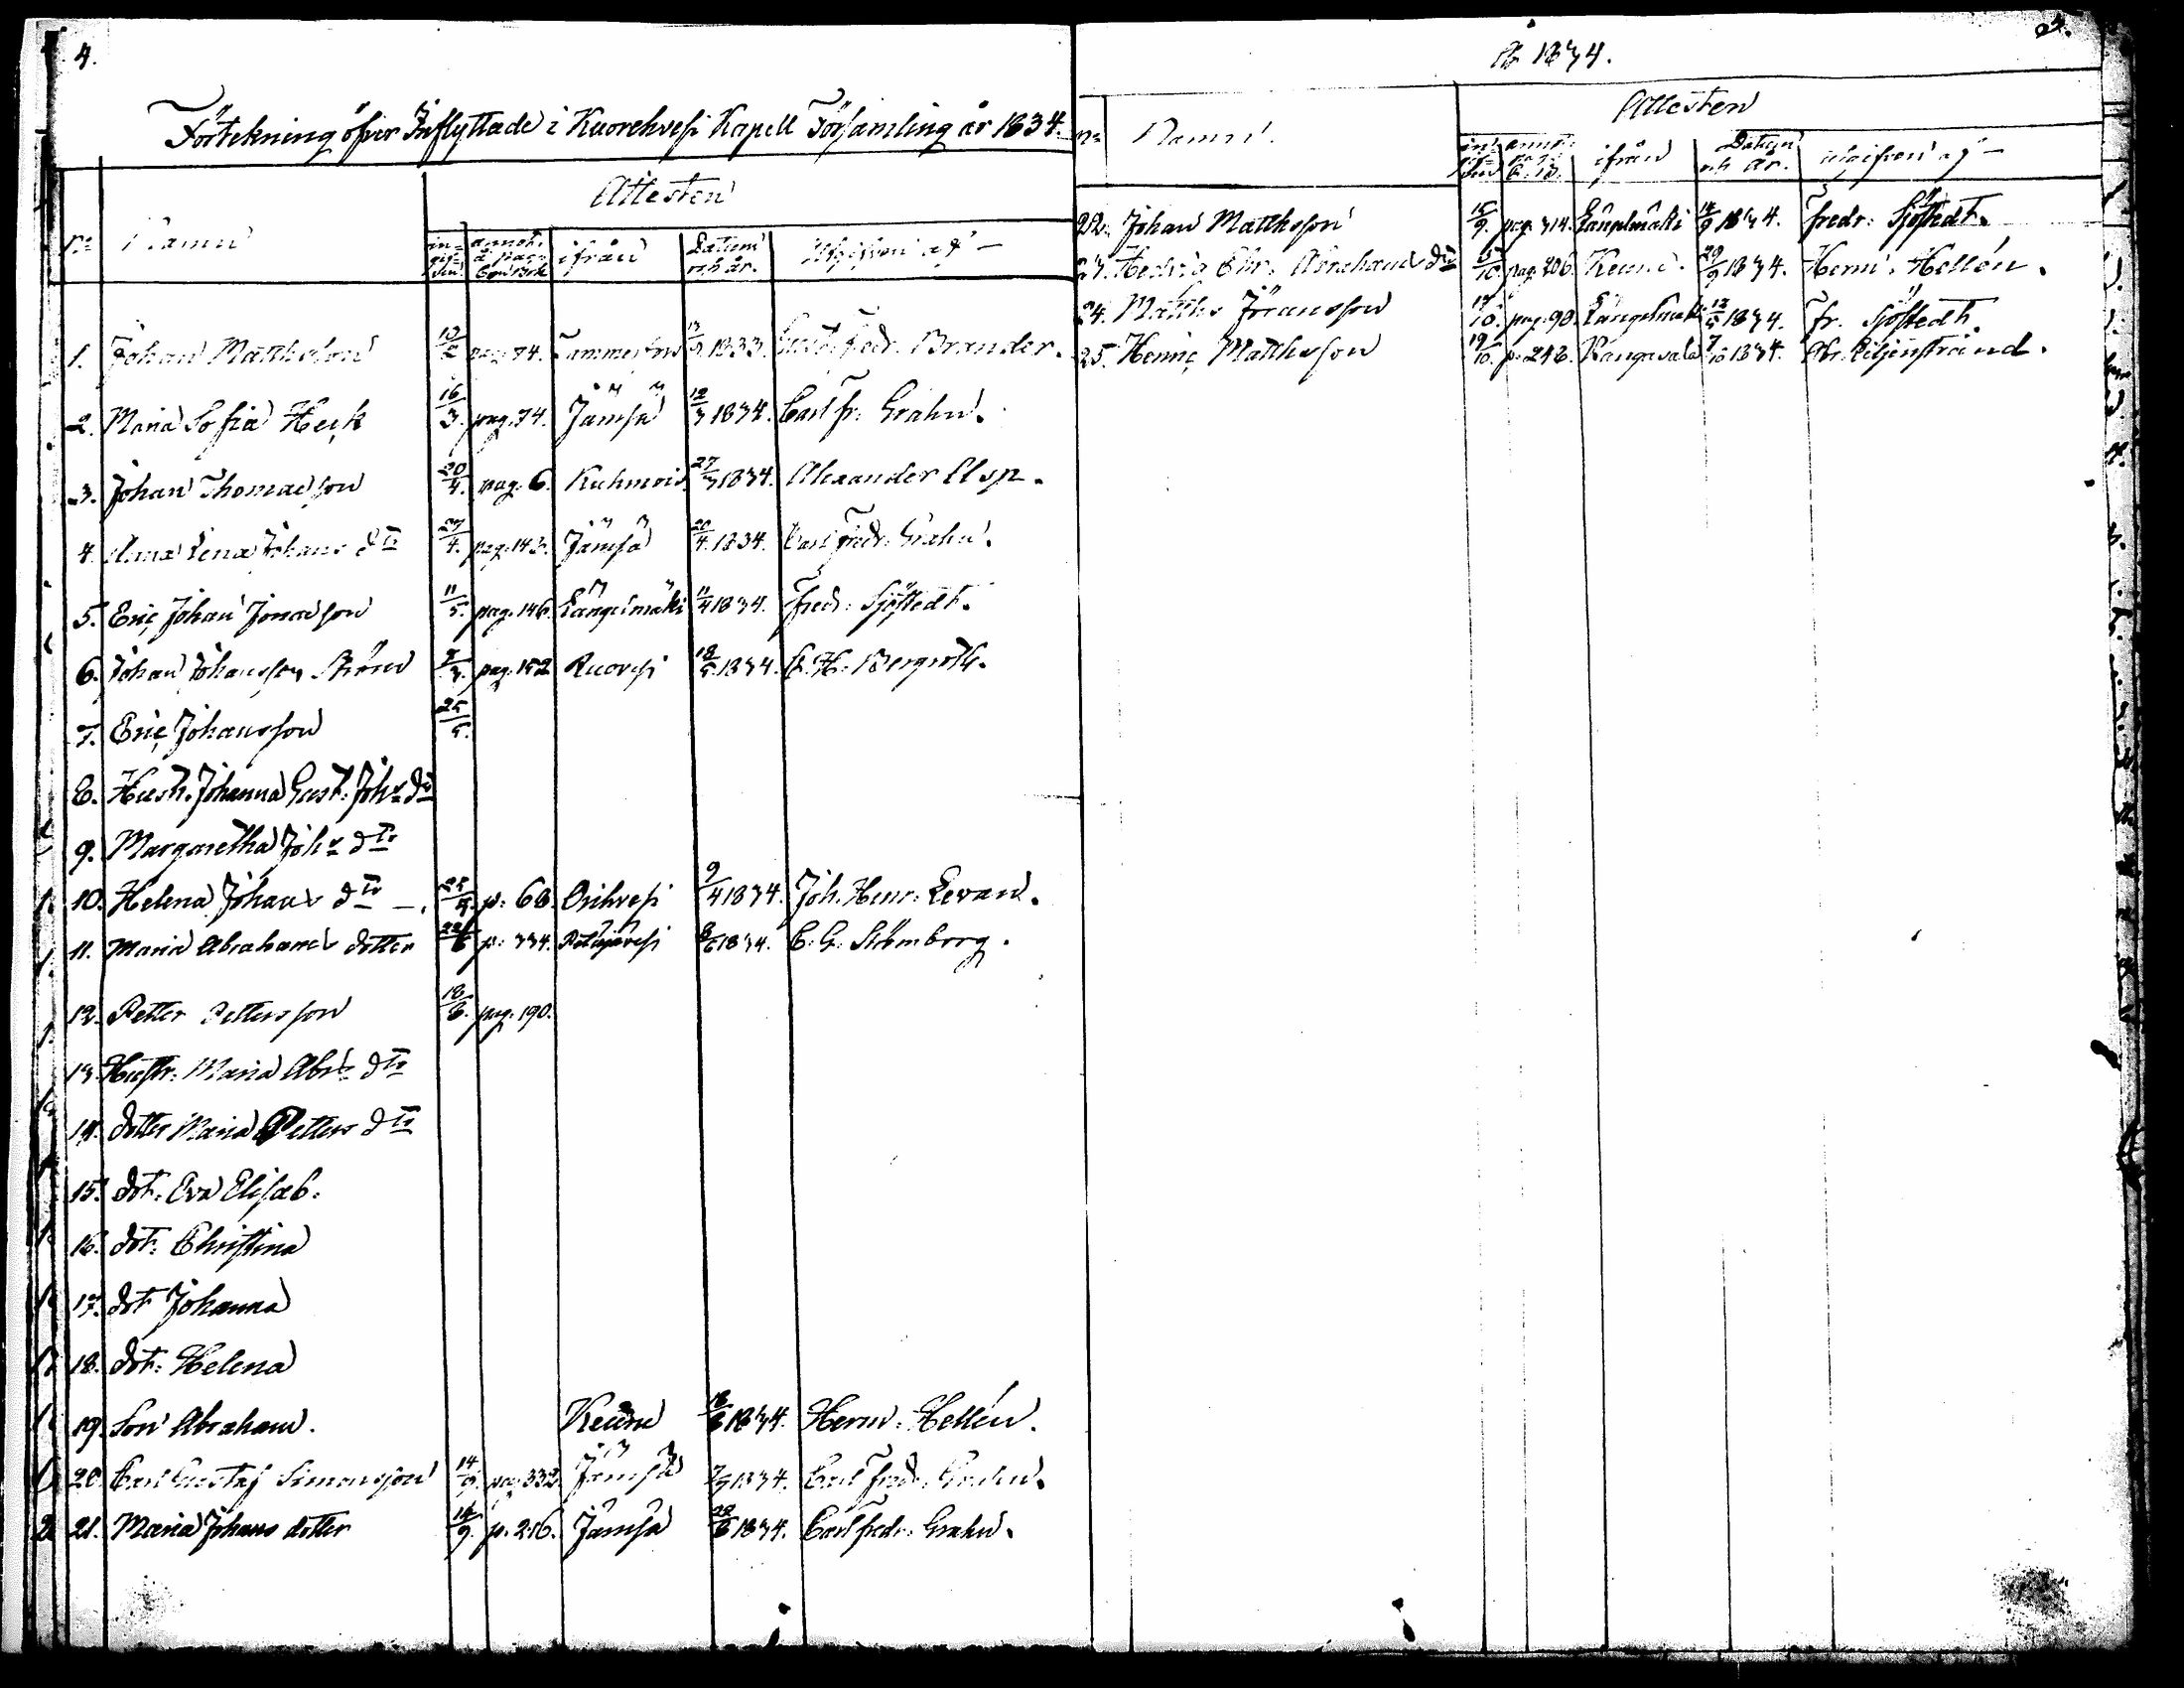 4.
Förtekning öfver Inflyttade i Kuorehvesi Kapell Församling år 1834.
Attesten
No Namn in-gif-ven annot. å pag. Com. Bok ifrån Datum och år. Utgifven af —
1. Johan Matthsson 12/2 pag. 74. Tammerfors 1833. Gust. Fredr. Brander.
2. Maria Sofia Heck 16/3. pag. 74. Jämsä 12/3 1834. Carl Fr. Grahn.
3. Johan Thomasson 20/4. pag. 6. Kuhmois 27/3 1834. Alexander Asp.
4. Anna Lena Johans dtr 27/4. pag. 143. Jämsä 20/4. 1834. Carl Fredr. Grahn.
5. Eric Johan Jonasson 11/5. pag. 146. Längelmäki 11/4 1834. Fred: Sjöstedt.
6. Johan Johansson pag. 152 Ruovesi 18/5. 1834. C. H. Bergroth.
7. Eric Johansson 25/5.
8. Husth. Johanna Gust: Johs dr
9. Margaretha Johs dtr
10. Helena Johans dtr —. 25/5. p: 68. Orihvesi 9/4 1834. Joh. Henr: Levan.
11. Maria Abrahams dotter 22/6 p: 334. Pihlajavesi 8/6 1834. C. G: Strömborg.
12. Petter Pettersson 18/8. pag. 190.
13. Hustr: Maria Abrs dtr
14. dotter Maria Petters dtr
15. dot: Eva Elisab:
16. dot: Christina
17. dot Johanna
18. dot: Helena
19. Son Abraham. Keuru 18/8 1834. Herm: Hellén.
20. Carl Gustaf Simonsson 14/9. pag 332 Jämsä 7/9 1834. Carl Fredr. Grahn.
21. Maria Johans dotter 14/9. p. 216. Jämsä 28/8 1834. Carl Fredr: Grahn.
år 1834.
Attesten
No Namn. in-gif-ven annot. ifrån Datum och år. utgifven af —
22. Johan Matthsson 15/9. pag. 314. Längelmäki 14/9 1834. Fredr: Sjöstedt.
23. Hedvig Chr. Abrahams dr 15/10. pag. 206. Keuru. 29/9 1834. Herm: Hellén.
24. Matths Jöransson 17/10. pag. 90. Längelmäki 1834. Fr. Sjöstedt.
25. Henric Matthsson 19/10. p. 248. Kangasala 7/10 1834. Abr. Liljenstrand.